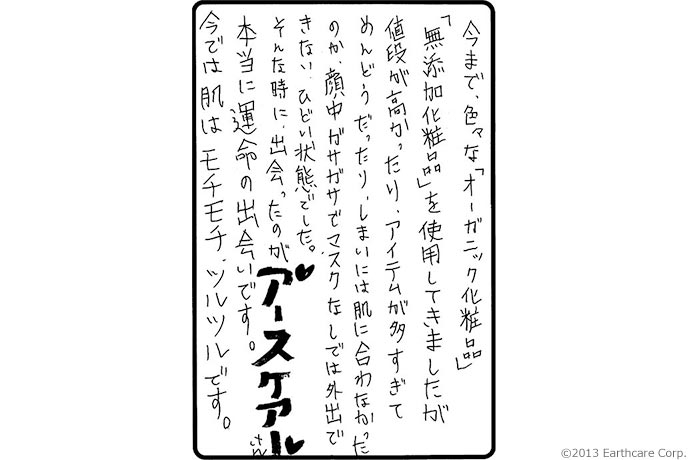 今まで、色々な「オーガニック化粧品」
「無添加化粧品」を使用してきましたが
値段が高かったり、アイテムが多すぎて
めんどうだったり、しまいには肌に合わなかった
のか、顔中ガサガサでマスクなしでは外出で
きない、ひどい状態でした。
そんな時に、出会ったのが
アースケア
さん
本当に運命の出会いです。
今では肌はモチモチ、ツルツルです。
©2013 Earthcare Corp.